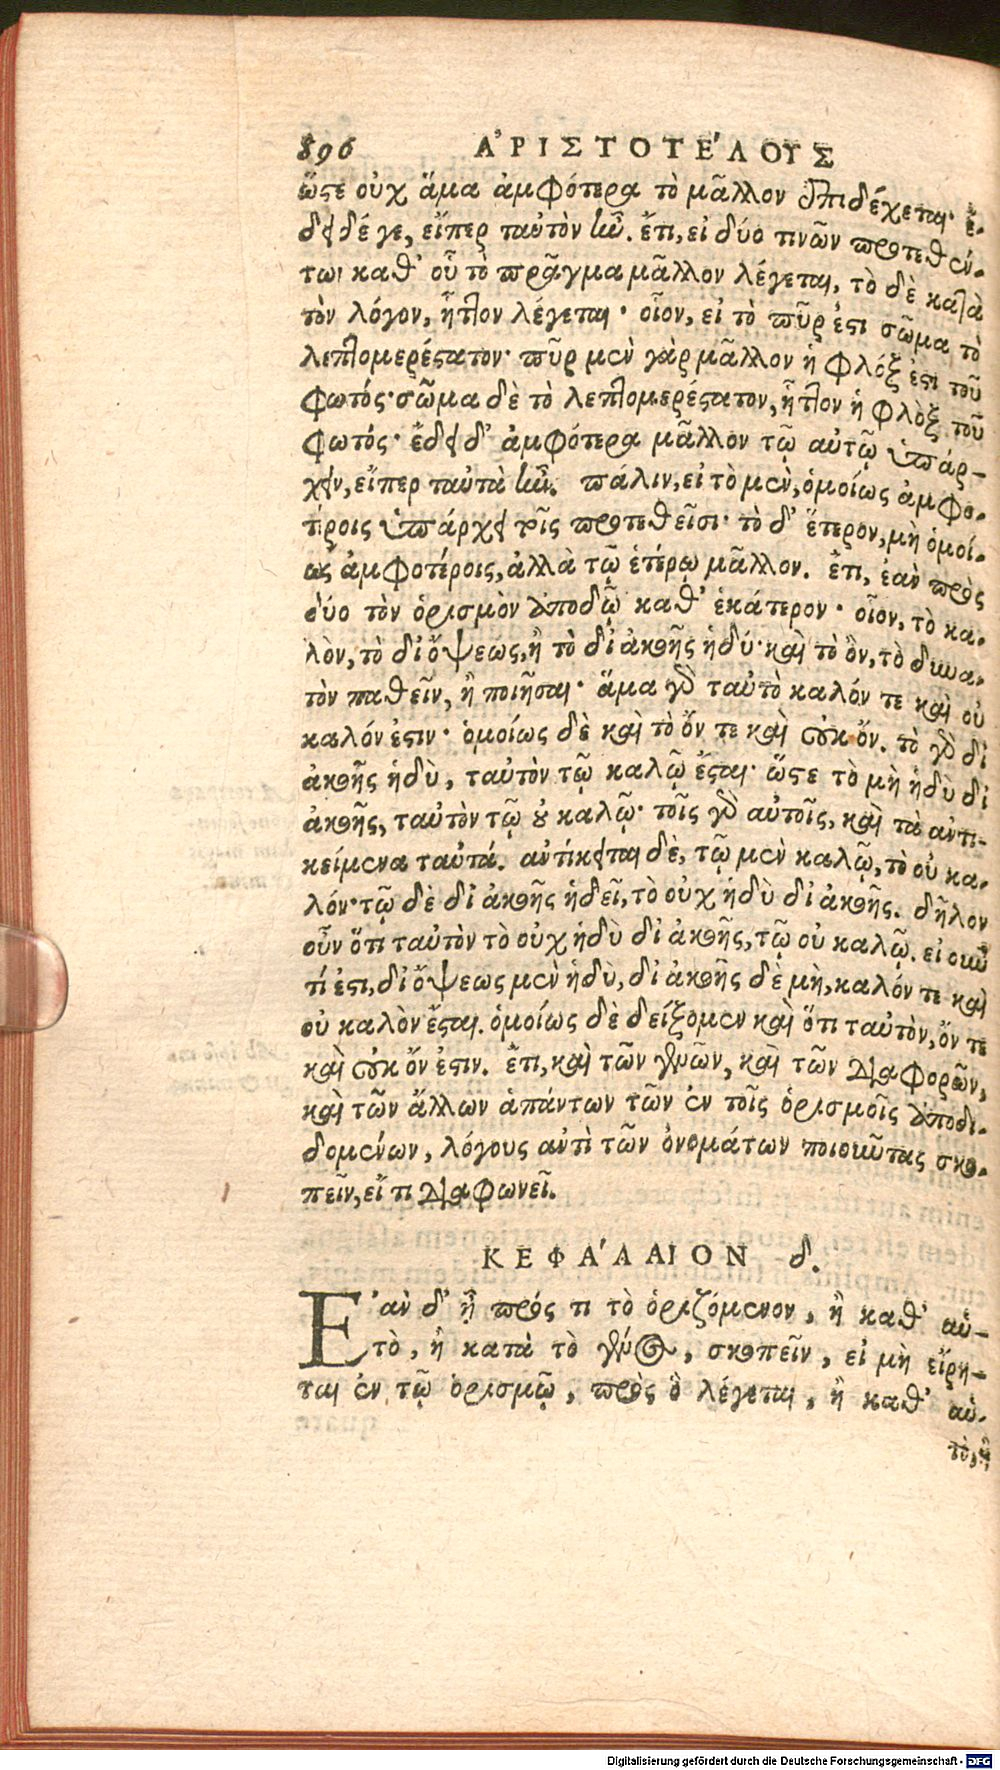 896 ἈΡΙΣΤΟΤΈΛΟΥΣ
ὥστε οὐχ ἅμα ἀμφότερα τὸ μᾶλλον ἐπιδέχεται· ἔ-
δει δέ γε, εἴπερ ταὐτὸν ἦν. ἔτι, εἰ δύο τινῶν προτεθέν-
των καθ' οὗ τὸ πρᾶγμα μᾶλλον λέγεται, τὸ δὲ κατὰ
τὸν λόγον, ἧττον λέγεται· οἷον, εἰ τὸ πῦρ ἐστι σῶμα τὸ
λεπτομερέστατον· πῦρ μὲν γὰρ μᾶλλον ἡ φλόξ ἐστι τοῦ
φωτός· σῶμα δὲ τὸ λεπτομερέστατον, ἧττον ἡ φλὸξ τοῦ
φωτός· ἔδει δ' ἀμφότερα μᾶλλον τῷ αὐτῷ ὑπάρ-
χειν, εἴπερ ταὐτὰ ἦν. πάλιν, εἰ τὸ μὲν, ὁμοίως ἀμφο-
τέροις ὑπάρχει τοῖς προτεθεῖσι· τὸ δ' ἕτερον, μὴ ὁμοί-
ως ἀμφοτέροις, ἀλλὰ τῷ ἑτέρῳ μᾶλλον. ἔτι, ἐὰν πρὸς
δύο τὸν ὁρισμὸν ἀποδῷ καθ' ἑκάτερον· οἷον, τὸ κα-
λὸν, τὸ δι' ὄψεως, ἢ τὸ δι' ἀκοῆς ἡδύ· καὶ τὸ ὂν, τὸ δυνα-
τὸν παθεῖν, ἢ ποιῆσαι· ἅμα γὰρ ταὐτὸ καλόν τε καὶ οὐ
καλόν ἐστιν· ὁμοίως δὲ καὶ τὸ ὄν τε καὶ οὐκ ὄν. τὸ γὰρ δι'
ἀκοῆς ἡδὺ, ταὐτὸν τῷ καλῷ ἔσται· ὥστε τὸ μὴ ἡδὺ δι'
ἀκοῆς, ταὐτὸν τῷ οὐ καλῷ· τοῖς γὰρ αὐτοῖς, καὶ τὰ ἀντι-
κείμενα ταὐτά. ἀντίκειται δὲ, τῷ μὲν καλῷ, τὸ οὐ κα-
λόν· τῷ δὲ δι' ἀκοῆς ἡδεῖ, τὸ οὐχ ἡδὺ δι' ἀκοῆς. δῆλον
οὖν ὅτι ταὐτὸν τὸ οὐχ ἡδὺ δι' ἀκοῆς, τῷ οὐ καλῷ. εἰ οὖν
τί ἐστι, δι' ὄψεως μὲν ἡδὺ, δι' ἀκοῆς δὲ μὴ, καλόν τε καὶ
οὐ καλὸν ἔσται. ὁμοίως δὲ δείξομεν καὶ ὅτι ταὐτὸν, ὄν τε
καὶ οὐκ ὄν ἐστιν. ἔτι, καὶ τῶν γενῶν, καὶ τῶν διαφορῶν,
καὶ τῶν ἄλλων ἁπάντων τῶν ἐν τοῖς ὁρισμοῖς ἀποδι-
δομένων, λόγους ἀντὶ τῶν ὀνομάτων ποιοῦντας σκο-
πεῖν, εἴ τι διαφωνεῖ.
ΚΕΦΆΛΑΙΟΝ δ.
Ἐὰν δ' ᾖ πρός τι τὸ ὁριζόμενον, ἢ καθ' αὑ-
τὸ, ἢ κατὰ τὸ γένος, σκοπεῖν, εἰ μὴ εἴρη-
ται ἐν τῷ ὁρισμῷ, πρὸς ὃ λέγεται, ἢ καθ' αὑ-
τὸ, ἢ
Digitalisierung gefördert durch die Deutsche Forschungsgemeinschaft - DFG